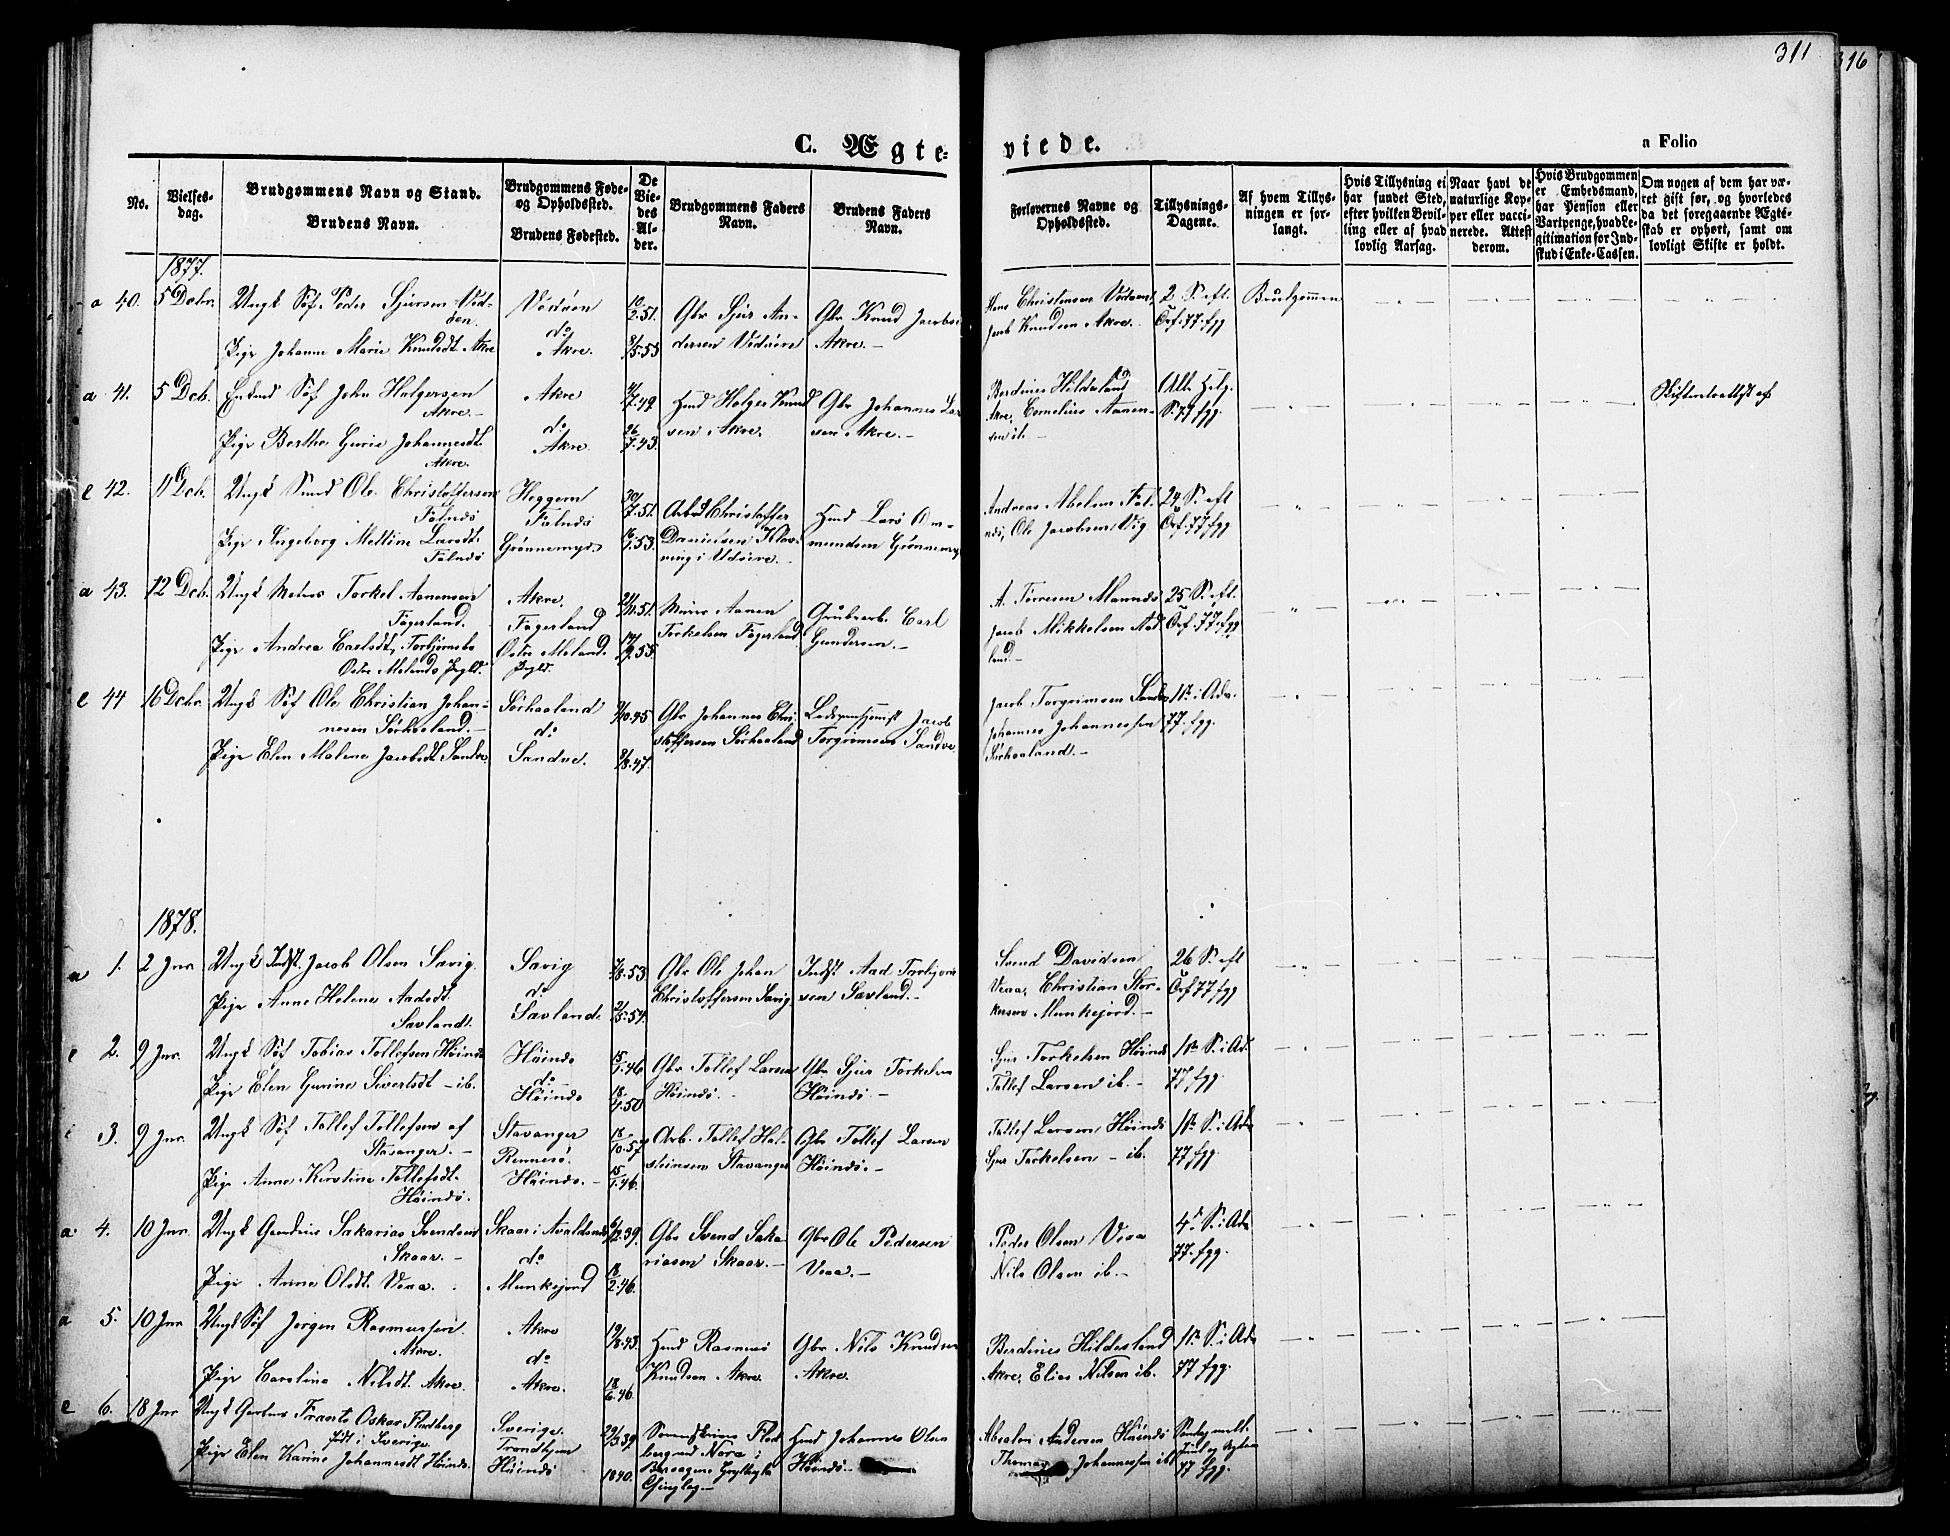 311
316
C. Ægte-
viede.
a Folio
No.
Vielses-
dag.
Brudgommens Navn og Stand.
Brudens Navn.
Brudgommens Føde-
og Opholdssted.
Brudens Fødested.
De
Vie-
des
Al-
der.
Brudgommens Faders
Navn.
Brudens Faders
Navn.
Forlovernes Navne og
Opholdssted.
Tillysnings-
Dagene.
Af hvem Tillys-
ningen er for-
langt.
Hvis Tillysning ei
har fundet Sted,
efter hvilken Bevil-
ling eller af hvad
lovlig Aarsag.
Naar havt de
naturlige Kop-
per eller vacci-
nerede. Attest
derom.
Hvis Brudgommen
er Embedsmand,
har Pension eller
Vartpenge, hvad Le-
gitimation for Ind-
skud i Enke-Cassen.
Om nogen af dem har væ-
ret gift før, og hvorledes
da det foregaaende Ægte-
skab er ophørt, samt om
lovligt Skifte er holdt.
1877.
a 40. 5 Dcbr.
Ungk Söf. Peder Sjursen Ved-
öen.
Pige Johanne Marie Knudsdt. Akre
Vedöen
do
Akre.
10/2.51.
8/5.55
Gbr Sjur An-
dersen Vedöen
Gbr Knud Jacobsen
Akre.-
Hans Christensen Vedöen,
Jacob Knudsen Akre.
2 S. eft.
Tref. 77. fgg
Brudgommen
a 41. 5 Dcb.
Enkmd Söf John Holgersen
Akre.-
Pige Berthe Gurie Johannesdt.
Akre.
Akre
do
Akre.
7.49.
26/7.43.
Hmd Holger Knud
sen Akre.
Gbr Johannes Lar
sen Akre.-
Berdines Hildesland
Akre, Cornelius Aanen-
sen ib.-
All. Helg.
S. 77 fgg.
Skifteretsattest af
e 42. 11 Dcb.
Ungk Smed Ole Christoffersen
Falnes
Pige Ingeborg Mettine Larsdt.
Falnes
Falnes
Grönnemyr.
30/7.51.
16/7.53.
Arbd Christoffer
Danielsen Klov-
ning i Udsire.-
Hmd Lars Om-
mundsen Grönnemyr
Andreas Abelsen Fal-
nes, Ole Jacobsen Vig
24 S. eft
Tref. 77. fgg
a 43. 12 Dcb.
Ungk Torkel Aanensen
Fagerland.
Pige Andrea Carlsdt. Torbjörnsbo
Akre.
Fagerland
51.
9.55.
Aanen
Torkelsen Fagerland
Grubearb. Carl
Gundersen.-
A. Törresen Mannes
Jacob Mikkelsen Aad-
land.-
25 S. eft.
Tref. 77. fgg
e 44 16 Dcbr.
Ungk Söf Ole Christian Johan-
nesen Sörhaaland.-
Pige Elen Malene Jacobsdt. Sandve
Sörhaaland
do
Sandve.
10.45
8/8.47.
Gbr Johannes Chri
stoffersen Sörhaaland
Jacob
Torgrimsen Sandve
Jacob Torgrimsen Sandve
Johannes Johannessen
Sörhaaland.-
1ste i Adv.
77. fgg.
1878.
a 1. 2 Jnr
Ungk Indst. Jacob Olsen Sævig
Pige Anne Helene Aadsdt.
Sævland.
Sævig
do
Sævland.
8.53
5.54.
Gbr Ole Johan
Christoffersen Sævig
Indst Aad Torbjörn
sen Sævland.-
Svend Davidsen
Veaa, Christian Stor-
kersen Munkejord.-
26 S. eft
Tref 77 fgg
e 2. 9 Jnr.
Ungk Söf Tobias Tollefsen Höines
Pige Elen Gurine Sivertsdt - ib.
Höines
do
Höines
15/1.46
18/4.50
Gbr Tollef Larsen
Höines.
Gbr Sjur Torkelsen
Höines.-
Sjur Torkelsen Höines
Tollef Larsen ib.-
1ste S. i Ad.
77 fgg.
e 3. 9 Jnr.
Ungk Söf Tollef Tollefsen af
Stavanger.-
Pige Anne Kirstine Tollefsdt.
Höines.
Stavanger
Rennesö.
Höines.-
18/10.57
15/1.46.
Arb. Tollef Hal-
steinsen Stavanger
Gbr Tollef Larsen
Höines.-
Tollef Larsen Höines
Sjur Torkelsen - ib.
1ste S. i Adv
77 fgg.
a 4. 10 Jnr.
Ungk Sakarias Svendsen
Skaar.-
Pige Anne Olsdt. Veaa.
Skaar i Avaldsnes
do
Munkejord
39.
18/2.46.
Gbr Svend Saka-
riasen Skaar.-
Gbr Ole Pedersen
Veaa.-
Peder Olsen Veaa
Nils Olsen ib.-
4de S. i Adv
77. fgg.
a 5. 10 Jnr
Ungk Söf Jörgen Rasmussen
Akre.
Pige Caroline Nilsdt. Akre.
Akre
do
Akre.
19/8.43.
18/6.46.
Hmd Rasmus
Knudsen Akre.
Gbr Nils Knudsen
Akre.
Berdines Hildesland
Akre, Elias Nilsen ib.
1ste S. i Adv
77 fgg.
e 6. 18 Jnr
Ungk Frants Oskar Flodberg
födt i Sverige.
Pige Elen Karine Johannesdt Höines.
Sverige.
Trondhjem
Höines
29/3.39
1840.
Hmd Johannes Olsen
Höines.-
Absalon Andersen Höines
Thomas Johannessen ib.
Söndag mell.
Juul og Nytaar
77 fgg.